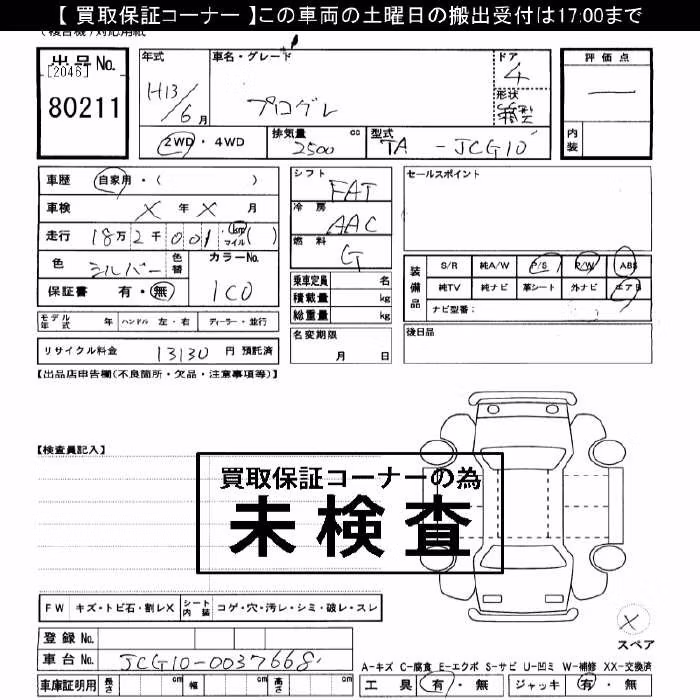 【 買取保証コーナー 】この車両の土曜日の搬出受付は17:00まで
出品No.
[2046]
80211
年式
H13/6月
車名・グレード
プログレ
ドア
4
形状
箱型
評価点
—
内装
2WD・4WD
排気量 2500 cc
型式 TA - JCG10
車歴 自家用・( )
車検 X年X月
走行 18万2千001 km マイル ( )
色 シルバー
色替
カラーNo. 1C0
保証書 有・無
シフト FAT
冷房 AAC
燃料 G
乗車定員 名
積載量 kg
総重量 kg
名変期限 月 日
セールスポイント
装備品
S/R 純A/W P/S P/W ABS
純TV 純ナビ 革シート 外ナビ エアB
ナビ型番:
後日品
モデル年式 年 ハンドル 左・右 ディーラー・並行
リサイクル料金 13130 円 預託済
【出品店申告欄(不良箇所・欠品・注意事項等)】
【検査員記入】
買取保証コーナーの為
未検査
FW キズ・トビ石・割レX シート内装 コゲ・穴・汚レ・シミ・破レ・スレ
登録No.
車台No. JCG10-0037668
車庫証明用 長さ cm 幅 cm 高さ cm
X
スペア
A-キズ C-腐食 E-エクボ S-サビ U-凹ミ W-補修 XX-交換済
工具 有・無 ジャッキ 有・無